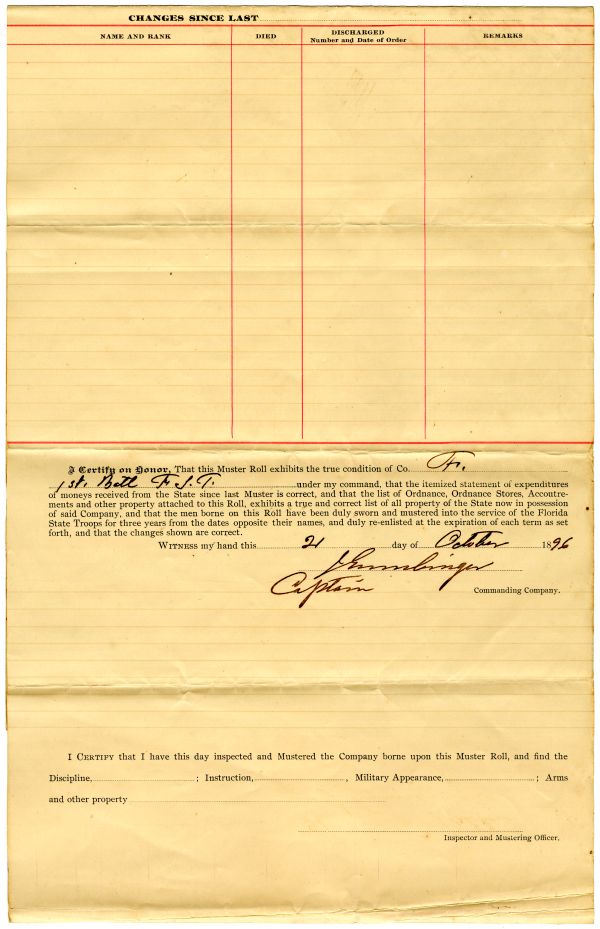 CHANGES SINCE LAST
NAME AND RANK DIED DISCHARGED Number and Date of Order REMARKS
I Certify on Honor, That this Muster Roll exhibits the true condition of Co. F.
1st. Batt F. S. T. under my command, that the itemized statement of expenditures
of moneys received from the State since last Muster is correct, and that the list of Ordnance, Ordnance Stores, Accoutre-
ments and other property attached to this Roll, exhibits a true and correct list of all property of the State now in possession
of said Company, and that the men borne on this Roll have been duly sworn and mustered into the service of the Florida
State Troops for three years from the dates opposite their names, and duly re-enlisted at the expiration of each term as set
forth, and that the changes shown are correct.
WITNESS my hand this 21 day of October 1896
Captain Commanding Company.
I CERTIFY that I have this day inspected and Mustered the Company borne upon this Muster Roll, and find the
Discipline, ; Instruction, , Military Appearance, ; Arms
and other property
Inspector and Mustering Officer.